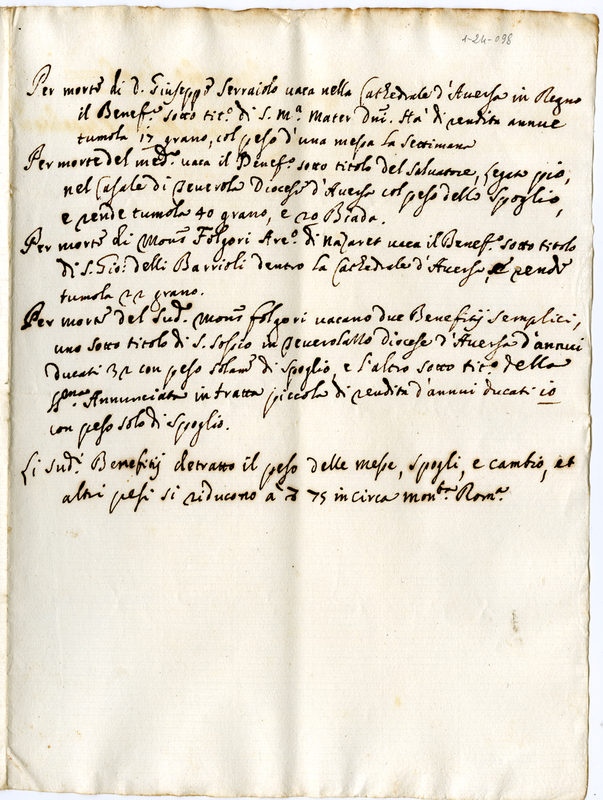 1-24-098
Per morte di D. Giusepp.e Serraiolo vaca nella Cathedrale d'Aversa in Regno
il Benef.o sotto tit.o di S. M.a Mater Dni. Stà di rendita annue
tumola 17 grano, col peso d'una messa la settimana
Per morte del med.o vaca il Benef.o sotto titolo del Salvatore, pio,
nel Casale di Teverola Diocesi d'Aversa col peso dello Spoglio,
e rende tumola 40 grano, e 20 Biada.
Per morte di Mons. Folgori Arc.o di Nazaret vaca il Benef.o sotto titolo
di S. Gio: delli Barrioli dentro la Cathedrale d'Aversa, rende
tumola 22 grano.
Per morte del Sud.o Mons. Folgori vacano due Benefitij semplici,
uno sotto titolo di S. Sossio in Teverolazzo diocese d'Aversa d'annui
ducati 32 con peso solam.e di spoglio, e l'altro sotto tit.o della
SS.ma Annunciata in fratta piccola di rendita d'annui ducati 10
con peso solo di spoglio.
Li Sud.i Benefitij detratto il peso delle messe, spogli, e cambio, et
altri pesi si riducono a 75 in circa mon.ta Rom.a